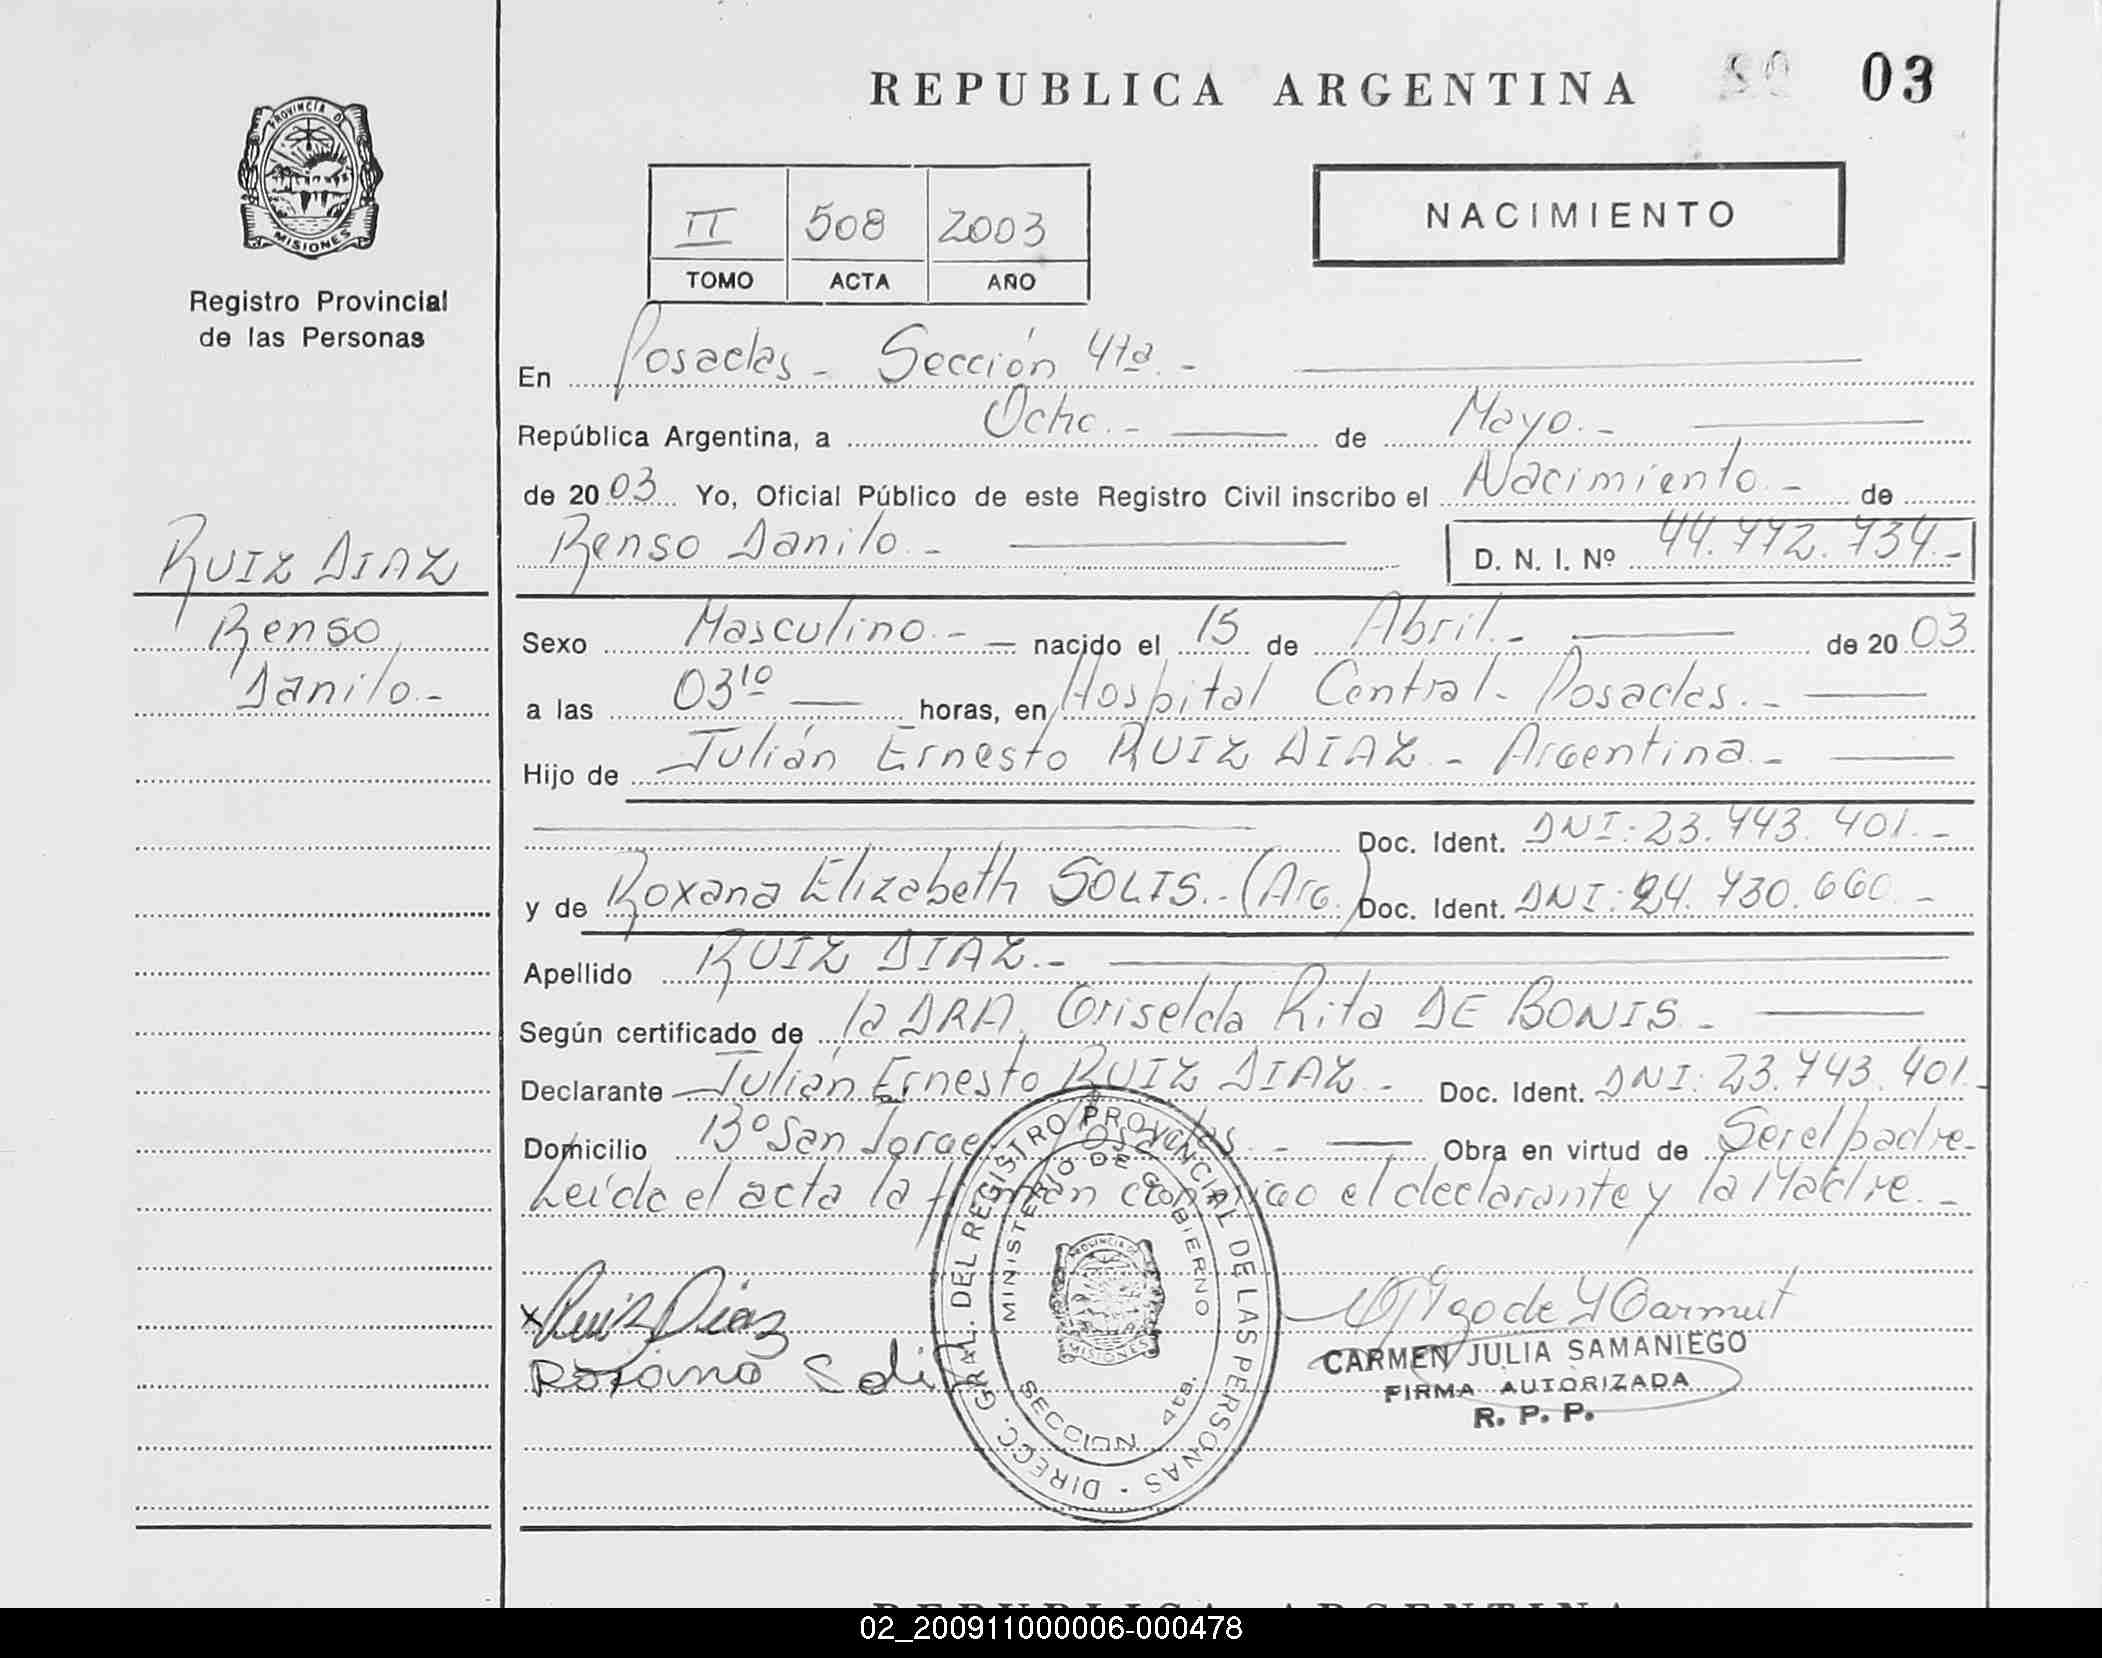 REPUBLICA ARGENTINA 03
PROVINCIA DE
MISIONES
Registro Provincial
de las Personas
II 508 2003
TOMO ACTA AÑO
NACIMIENTO
En Posadas - Sección 4ta. -
República Argentina, a Ocho. - de Mayo. -
de 20 03 Yo, Oficial Público de este Registro Civil inscribo el Nacimiento - de
Renso Danilo. - D. N. I. Nº 44.772.734.-
RUIZ DIAZ
Renso
Danilo.-
Sexo Masculino. - nacido el 15 de Abril. - de 20 03
a las 03 10 horas, en Hospital Central - Posadas. -
Hijo de Julián Ernesto RUIZ DIAZ - Argentina -
Doc. Ident. DNI: 23.743.401.-
y de Roxana Elizabeth SOLIS.- (Arg.) Doc. Ident. DNI: 24.730.660 -
Apellido RUIZ DIAZ.-
Según certificado de la DRA. Griselda Rita DE BONIS -
Declarante Julián Ernesto RUIZ DIAZ - Doc. Ident. DNI: 23.743.401.-
Domicilio Bº San Jorge - Posadas. - Obra en virtud de Ser el padre-
Leída el acta la firman conmigo el declarante y la Madre. -
x Ruiz Diaz
Roxana Solis
DIRECC. GRAL. DEL REGISTRO PROVINCIAL DE LAS PERSONAS
MINISTERIO DE GOBIERNO
PROVINCIA DE
MISIONES
SECCION 4ta.
CARMEN JULIA SAMANIEGO
FIRMA AUTORIZADA
R. P. P.
REPUBLICA ARGENTINA
02_200911000006-000478